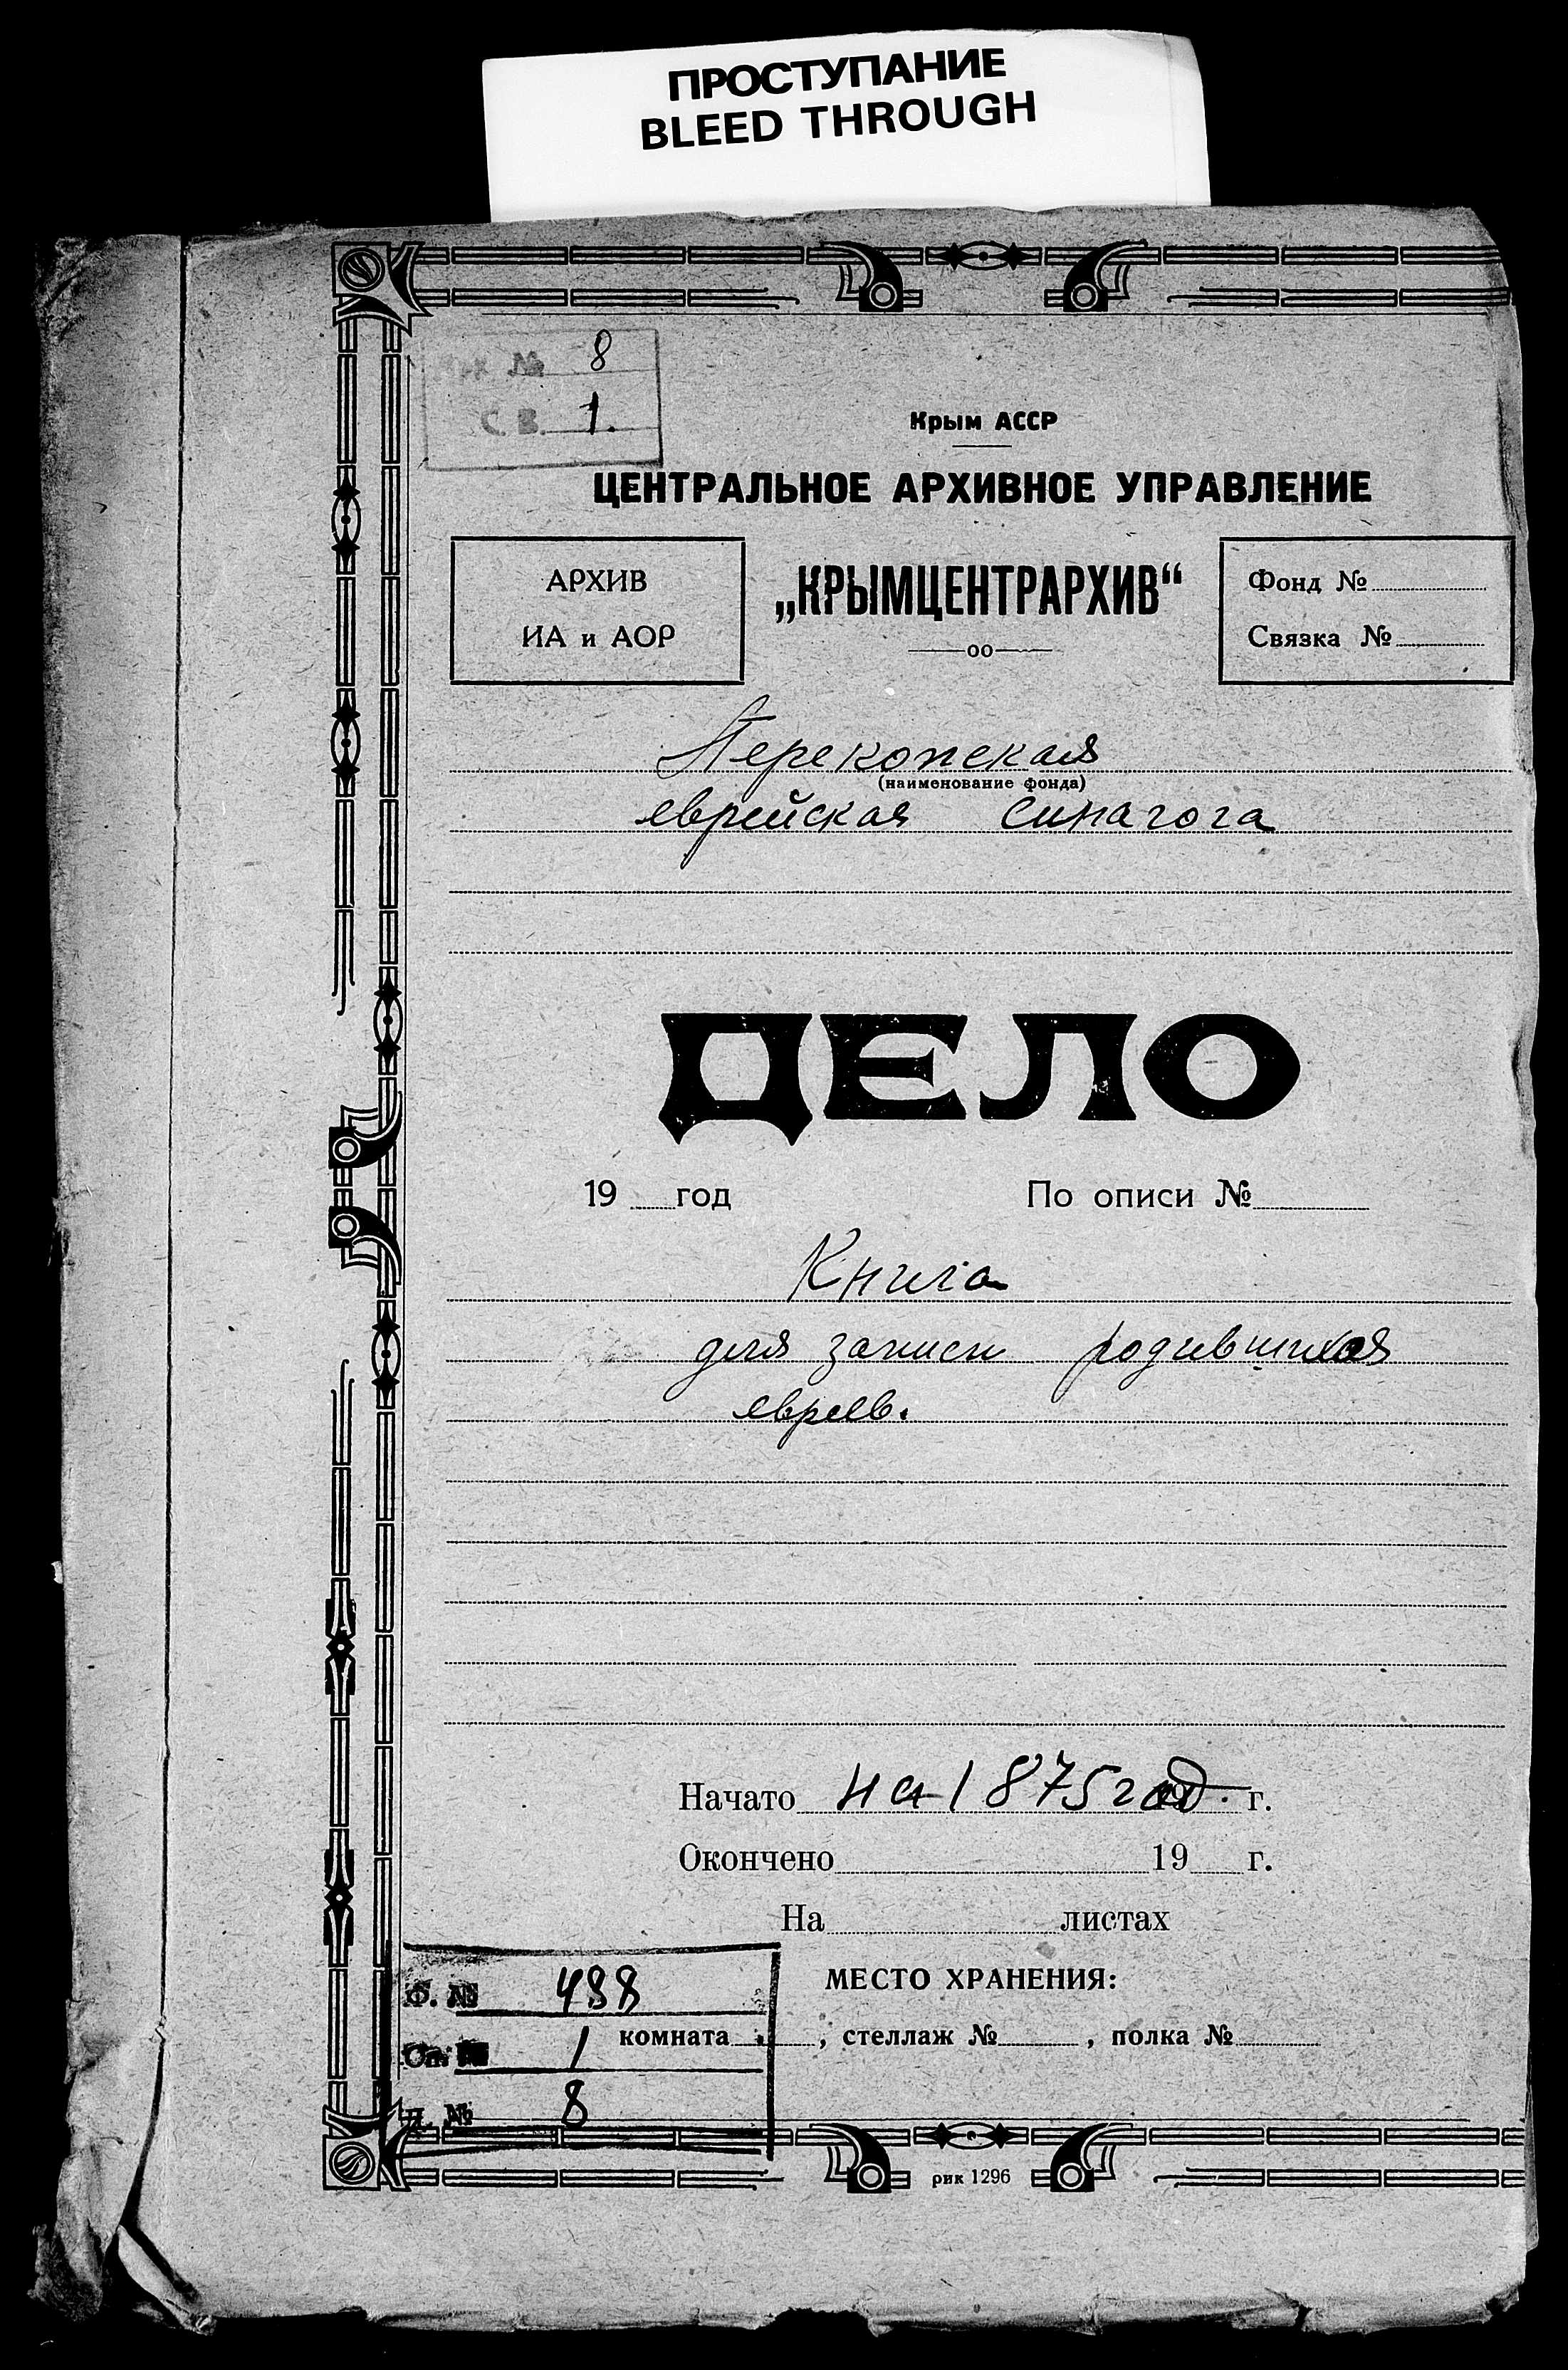 ПРОСТУПАНИЕ
BLEED THROUGH
Арх № 8
С В. 1.
Крым АССР
ЦЕНТРАЛЬНОЕ АРХИВНОЕ УПРАВЛЕНИЕ
АРХИВ
ИА и АОР
„КРЫМЦЕНТРАРХИВ“
Фонд №
Связка №
Перекопская
(наименование фонда)
еврейская синагога
ДЕЛО
19 год
По описи №
Книга
для записи родившихся
евреев.
Начато на 1875 год. г.
Окончено 19 г.
На листах
МЕСТО ХРАНЕНИЯ:
комната , стеллаж № , полка №
Ф. № 488
Оп. № 1
Д. № 8
рик 1296